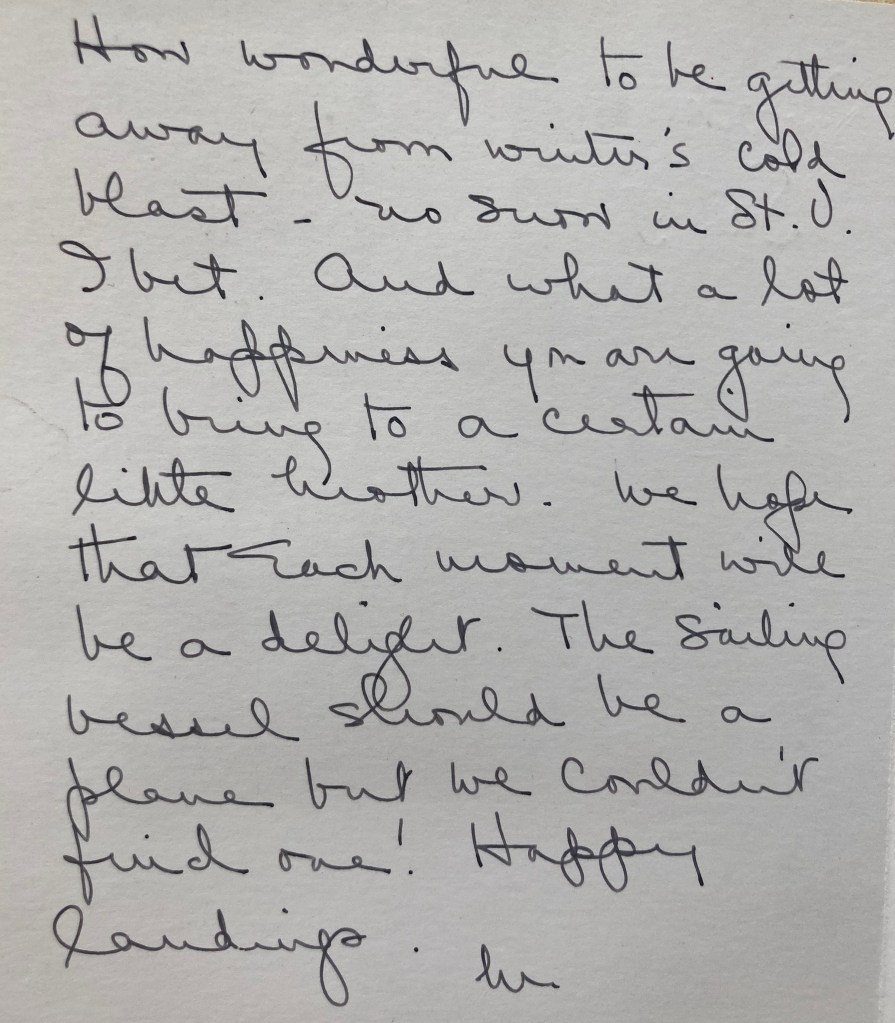 How wonderful to be getting
away from winter's cold
blast - no snow in St. V.
I bet. And what a lot
of happiness you are going
to bring to a certain
little brother. We hope
that each moment will
be a delight. The sailing
vessel should be a
plane but we couldn't
find one! Happy
landings.